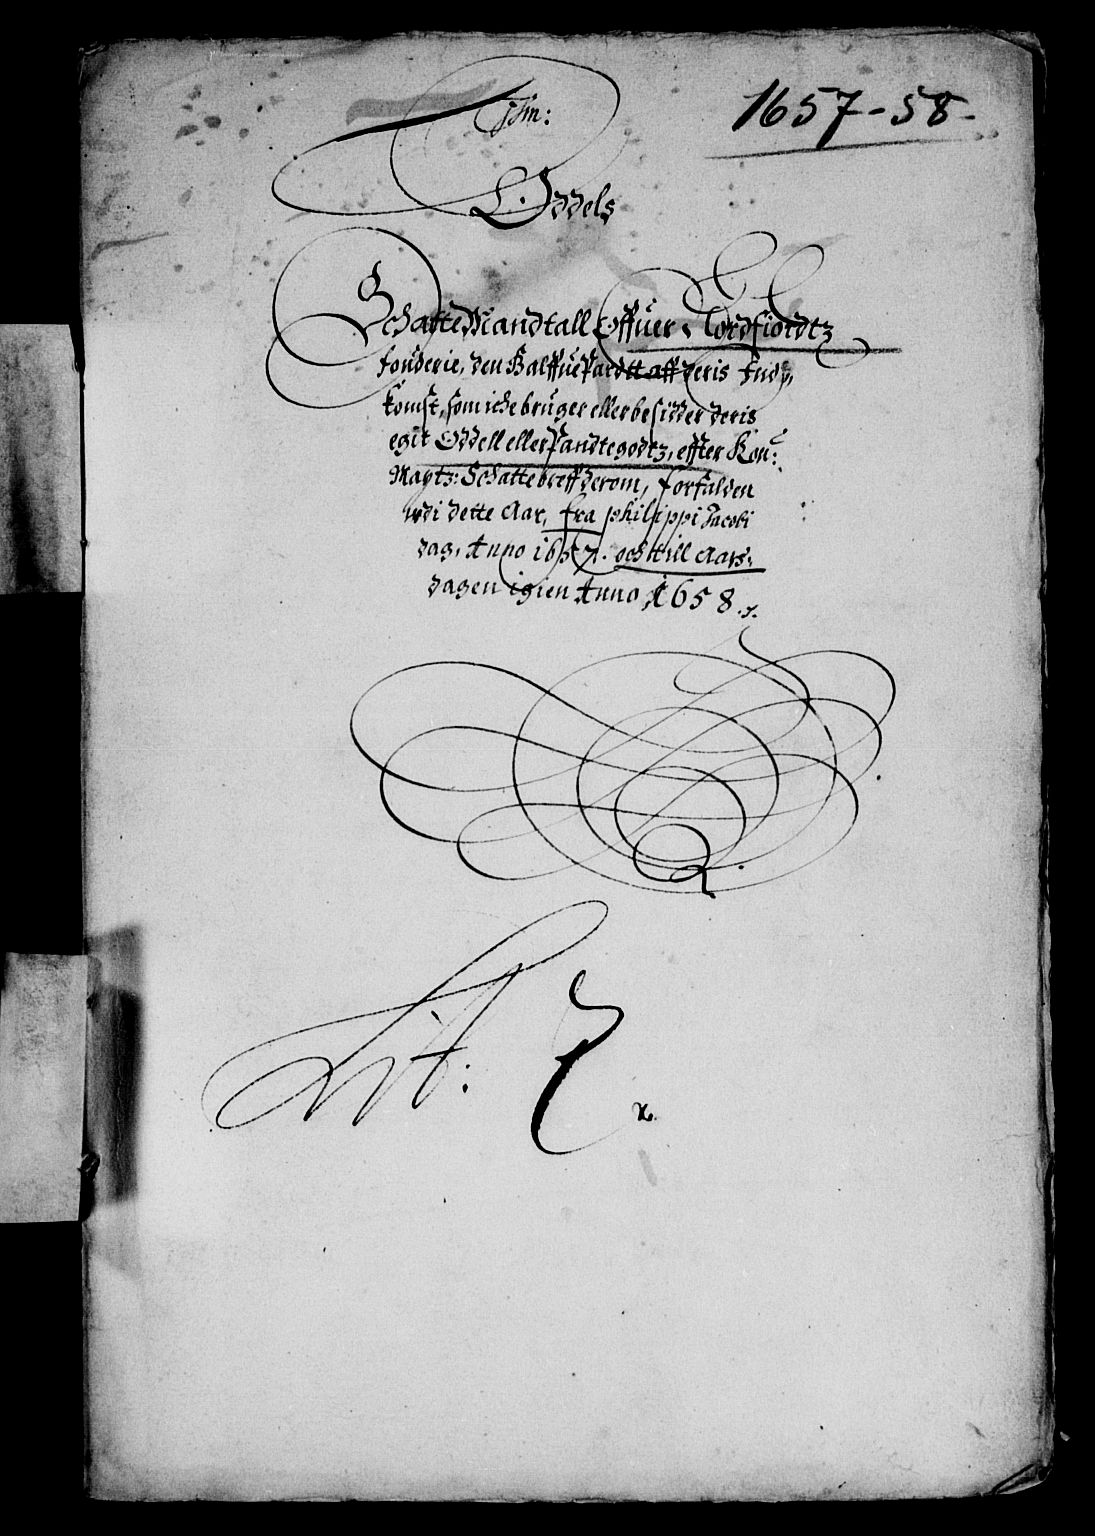 1657-58.
Oddels
Schatte Mandtall Offuer Nordfiordtz
fouderie, den Halffue Pardtt aff deris Indk
komst, som iche bruger eller besidder deris
egit Oddell eller Pandtegodtz, effter Kon:
Maytz: Schattebreff derom, forfalden
udi dette Aar, fra philippi Jacobi
dag, Anno 1657. och till Aars
dagen igien Anno, 1658.
Lit: